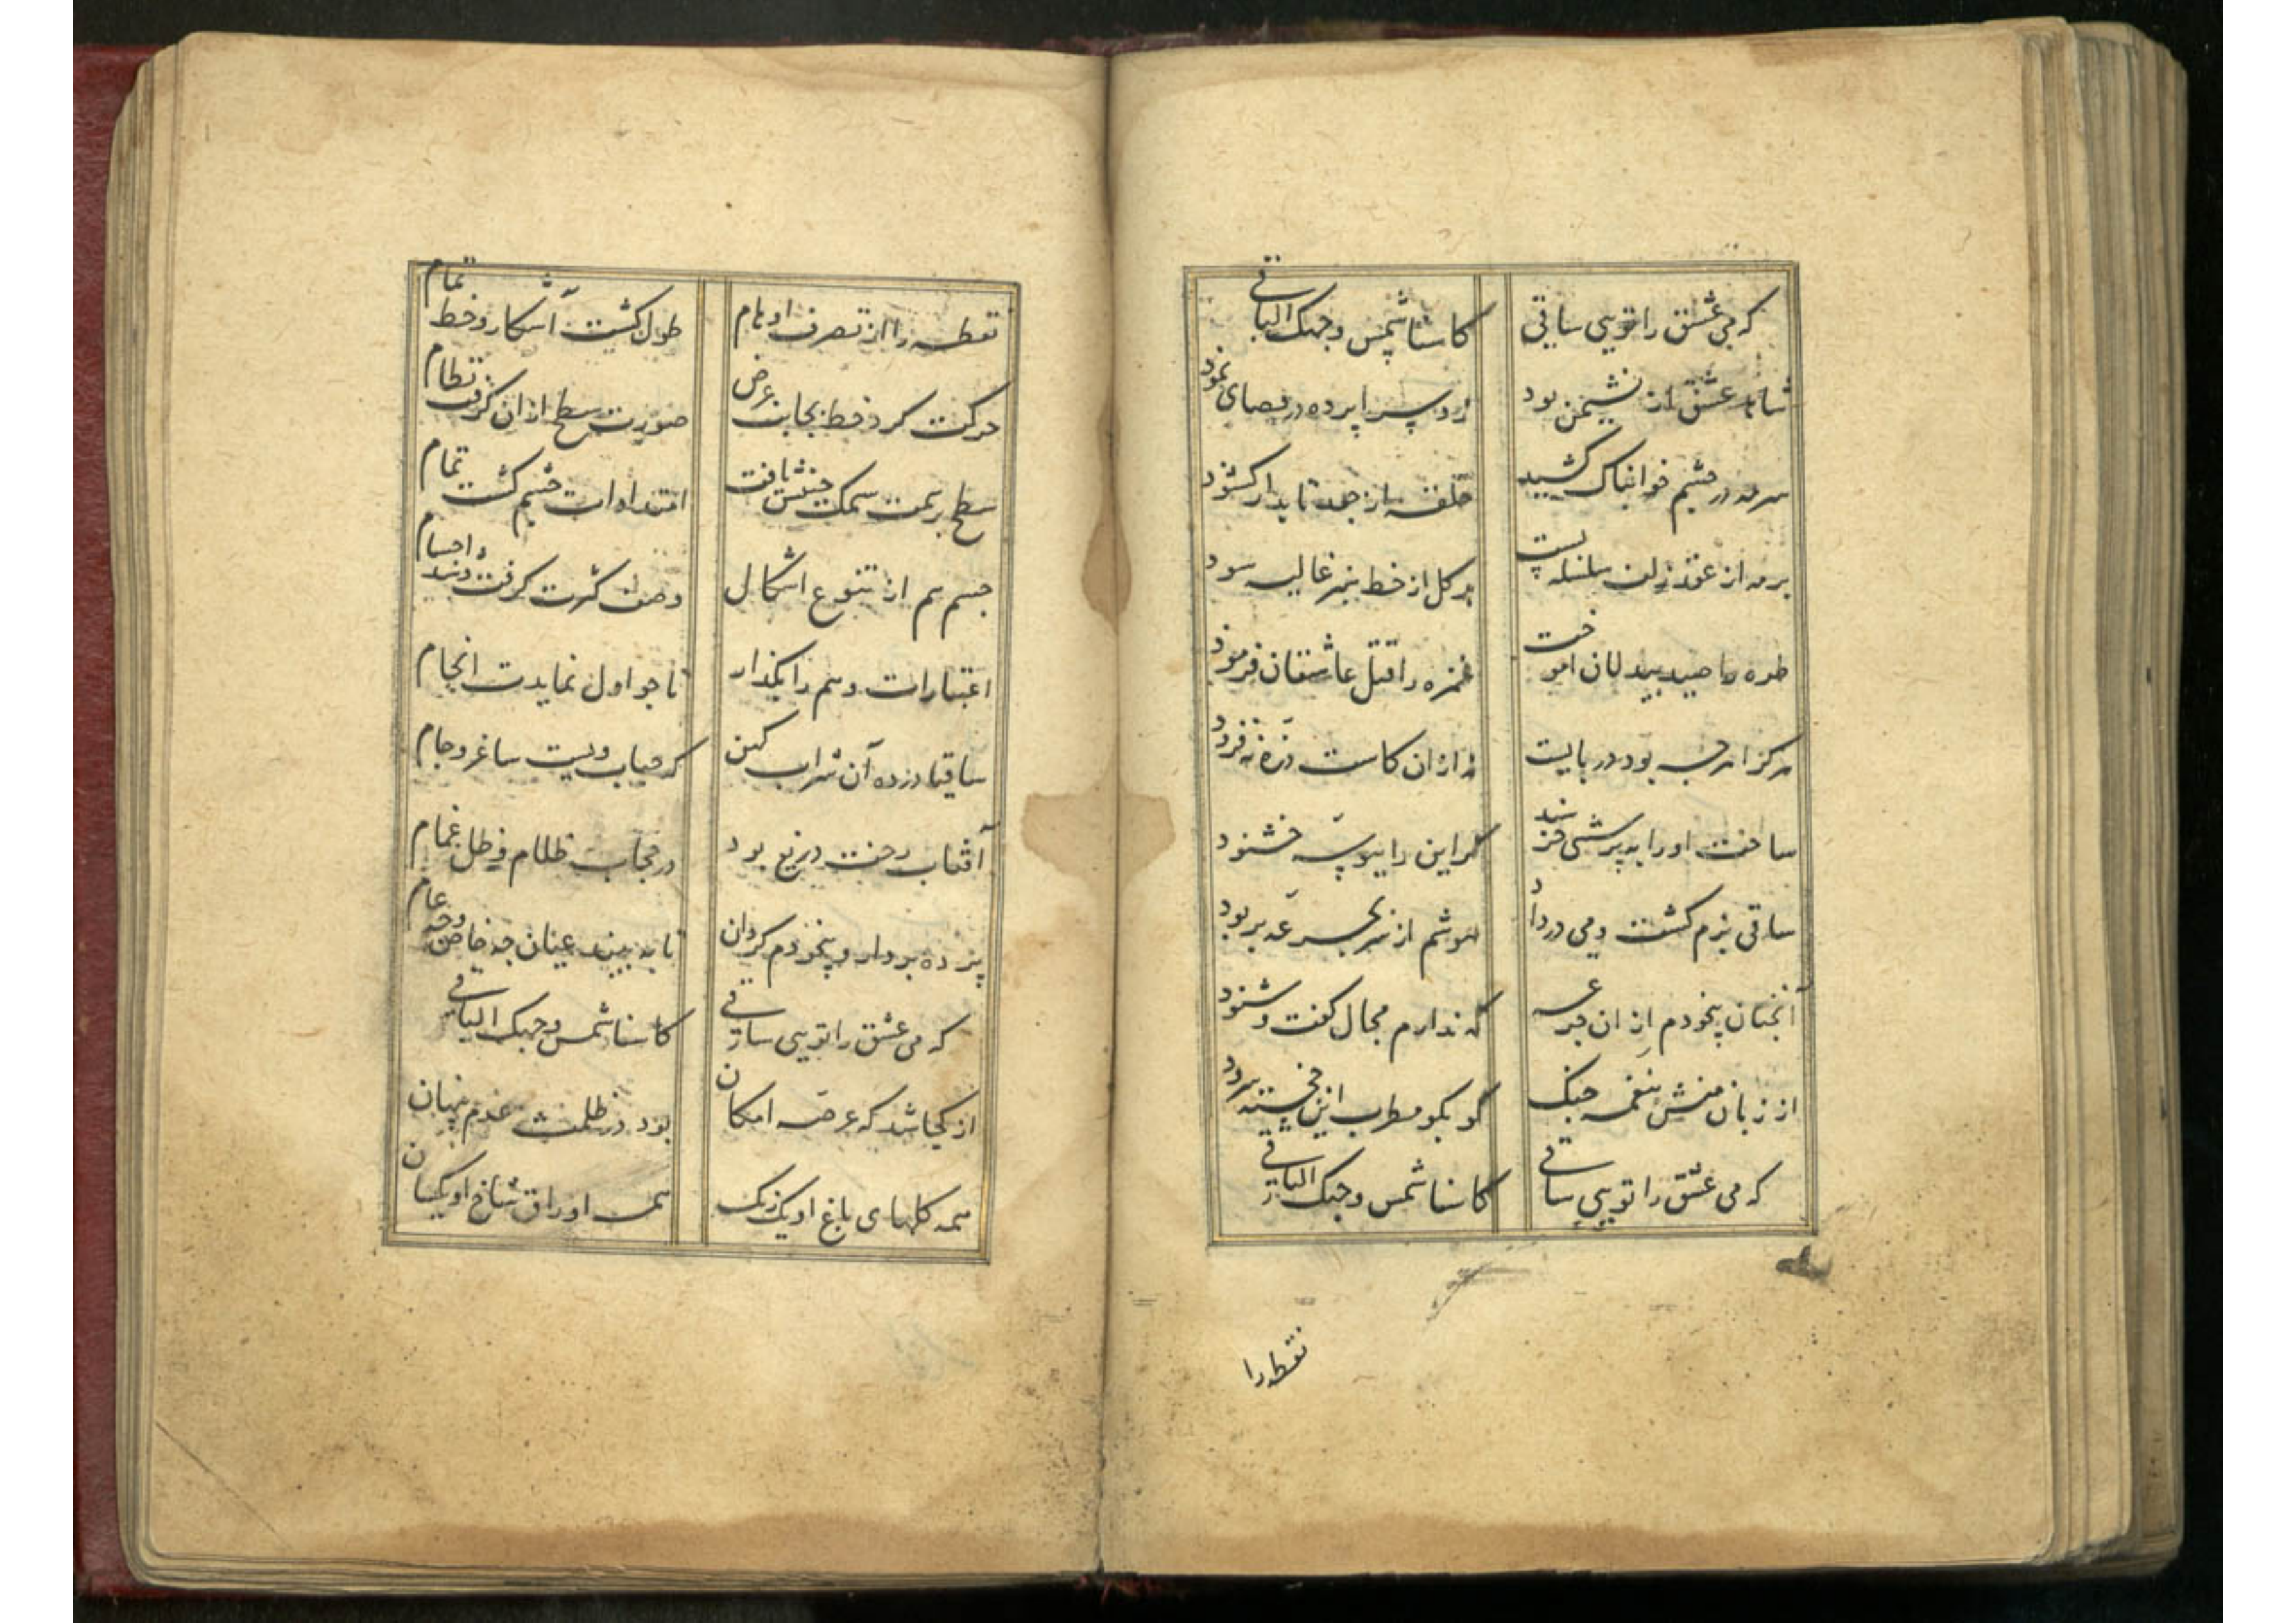 که می عشق را تویی ساقی کاسنا شمس وجهک الباقی
شاهد عشق از نشیمن بود زد سراپرده در فضای نمود
سرمه در چشم خوابناک کشید حلقه از جعد تابدار کشود
بر مه از عقد زلف سلسله بست بر کل از خط سبز غالیه سود
طره را صید بیدلان اموخت غمزه را قتل عاشقان فرمود
هرکرا هرچه بود در بایست نه ازان کاست ذره نه فزود
ساخت او را به پرسشی خرسند کرد این را ببوسه خشنود
ساقی بزم کشت و می در داد هوشم از سر بجرعه بربود
آنچنان بیخودم از ان جرعه که ندارم مجال کفت و شنود
از زبان منش بنغمه چنک کو بکو مطرب این خجسته سرود
که می عشق را تویی ساقی کاسنا شمس وجهک الباقی
نقطه را
نقطه را از تصرف اوهام طول کشت آشکار و خط تمام
حرکت کرد خط بجانب عرض صورت سطح ازان کرفت نظام
سطح بر سمت سمک جنبش یافت امتدادات جسم کشت تمام
جسم هم از تنوع اشکال وصف کثرت کرفت و شد اجسام
اعتبارات وهم را بکذار تا چو اول نمایدت انجام
ساقیا درده آن شراب کهن که حباب ویست ساغر و جام
آفتاب رخت دریغ بود در حجاب ظلام و ظل غمام
پرده بردار و بیخودم کردان تا به بیند عیان چه خاص و چه عام
که می عشق را تویی ساقی کاسنا شمس وجهک الباقی
از کجا شد که عرصه امکان بود در ظلمت عدم پنهان
همه کلهای باغ او یک رنک همه اوراق شاخ او یکسان